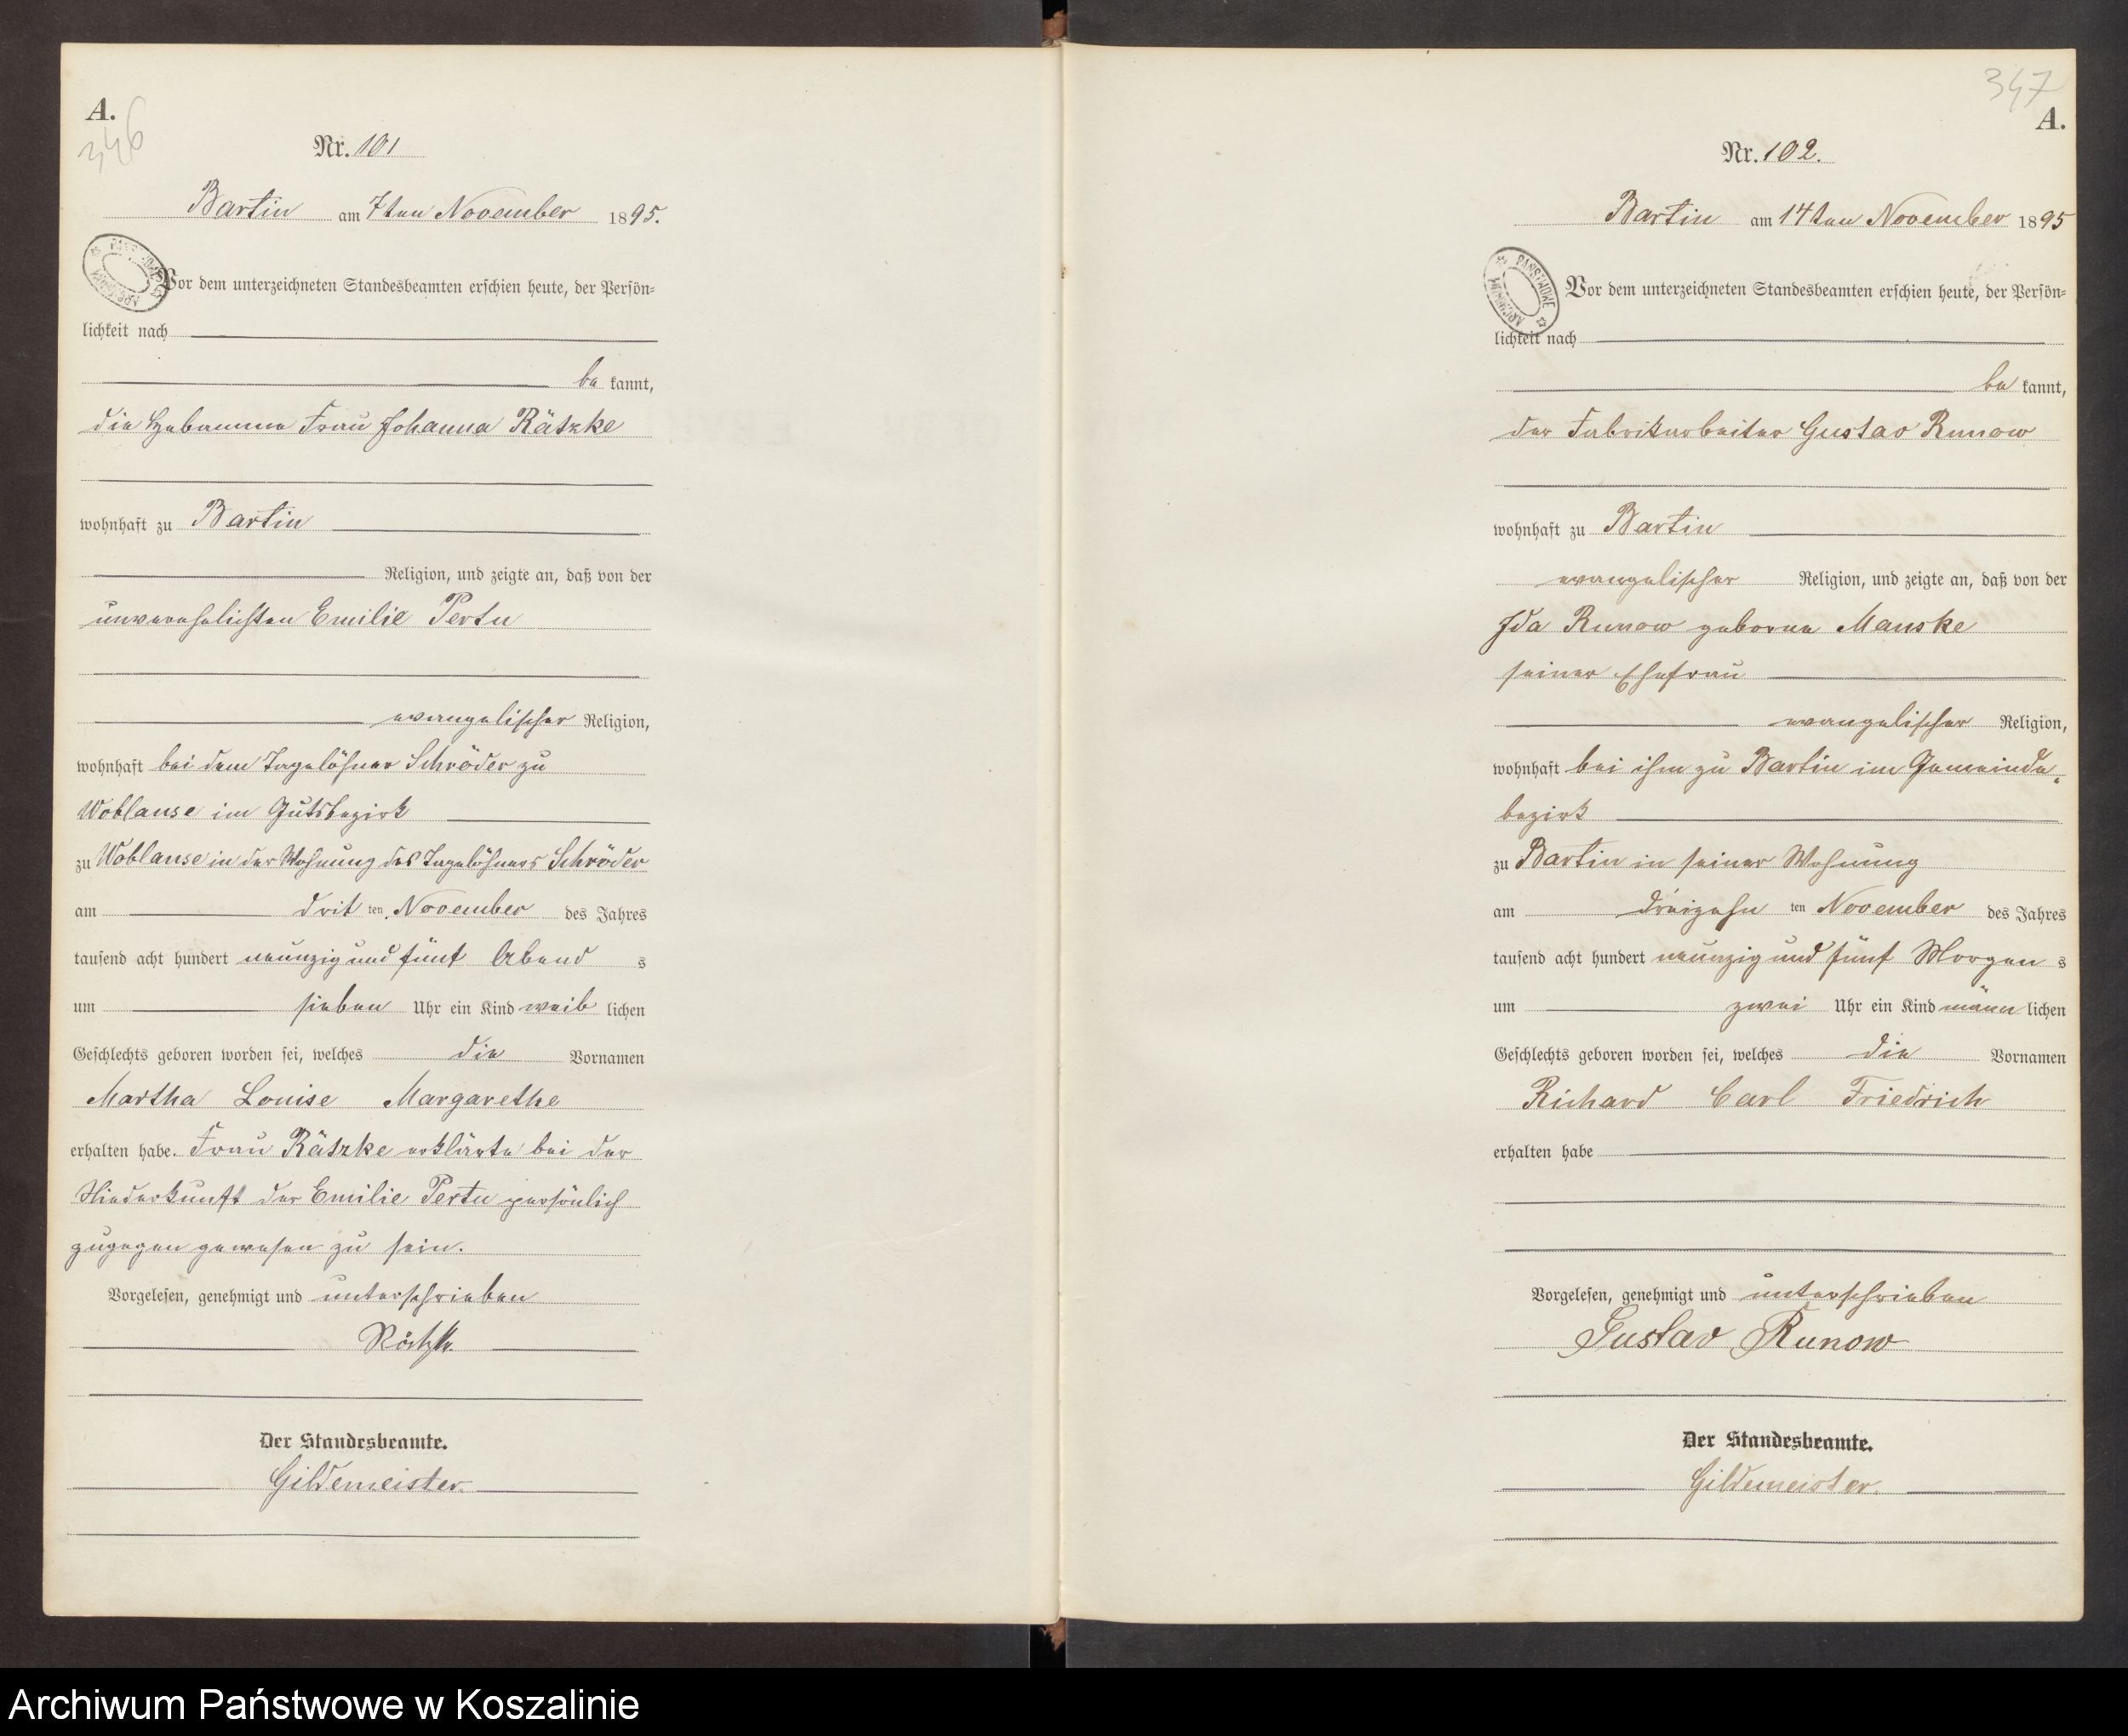 A.
346
Nr. 101
Bartin am 7ten November 1895.
Vor dem unterzeichneten Standesbeamten erschien heute, der Persön=
lichkeit nach
be kannt,
die Hebamme Frau Johanna Rätzke
wohnhaft zu Bartin
Religion, und zeigte an, daß von der
unverehelichten Emilie Pertu
evangelischer Religion,
wohnhaft bei dem Tagelöhner Schröder zu
Woblanse im Gutsbezirk
zu Woblanse in der Wohnung des Tagelöhners Schröder
am drit ten November des Jahres
tausend acht hundert neunzig und fünf Abend s
um sieben Uhr ein Kind weib lichen
Geschlechts geboren worden sei, welches die Vornamen
Martha Louise Margarethe
erhalten habe. Frau Rätzke erklärte bei der
Niederkunft der Emilie Pertu persönlich
zugegen gewesen zu sein.
Vorgelesen, genehmigt und unterschrieben
Rätzke
Der Standesbeamte.
Gildemeister.
347
A.
Nr. 102.
Bartin am 14ten November 1895
ARCHIWUM PAŃSTWOWE
Vor dem unterzeichneten Standesbeamten erschien heute, der Persön=
lichkeit nach
be kannt,
der Fabrikarbeiter Gustav Runow
wohnhaft zu Bartin
evangelischer Religion, und zeigte an, daß von der
Ida Runow geborne Manske
seiner Ehefrau
evangelischer Religion,
wohnhaft bei ihm zu Bartin im Gemeinde=
bezirk
zu Bartin in seiner Wohnung
am dreizehn ten November des Jahres
tausend acht hundert neunzig und fünf Morgen s
um zwei Uhr ein Kind männ lichen
Geschlechts geboren worden sei, welches die Vornamen
Richard Carl Friedrich
erhalten habe
Vorgelesen, genehmigt und unterschrieben
Gustav Runow
Der Standesbeamte.
Gildemeister.
Archiwum Państwowe w Koszalinie